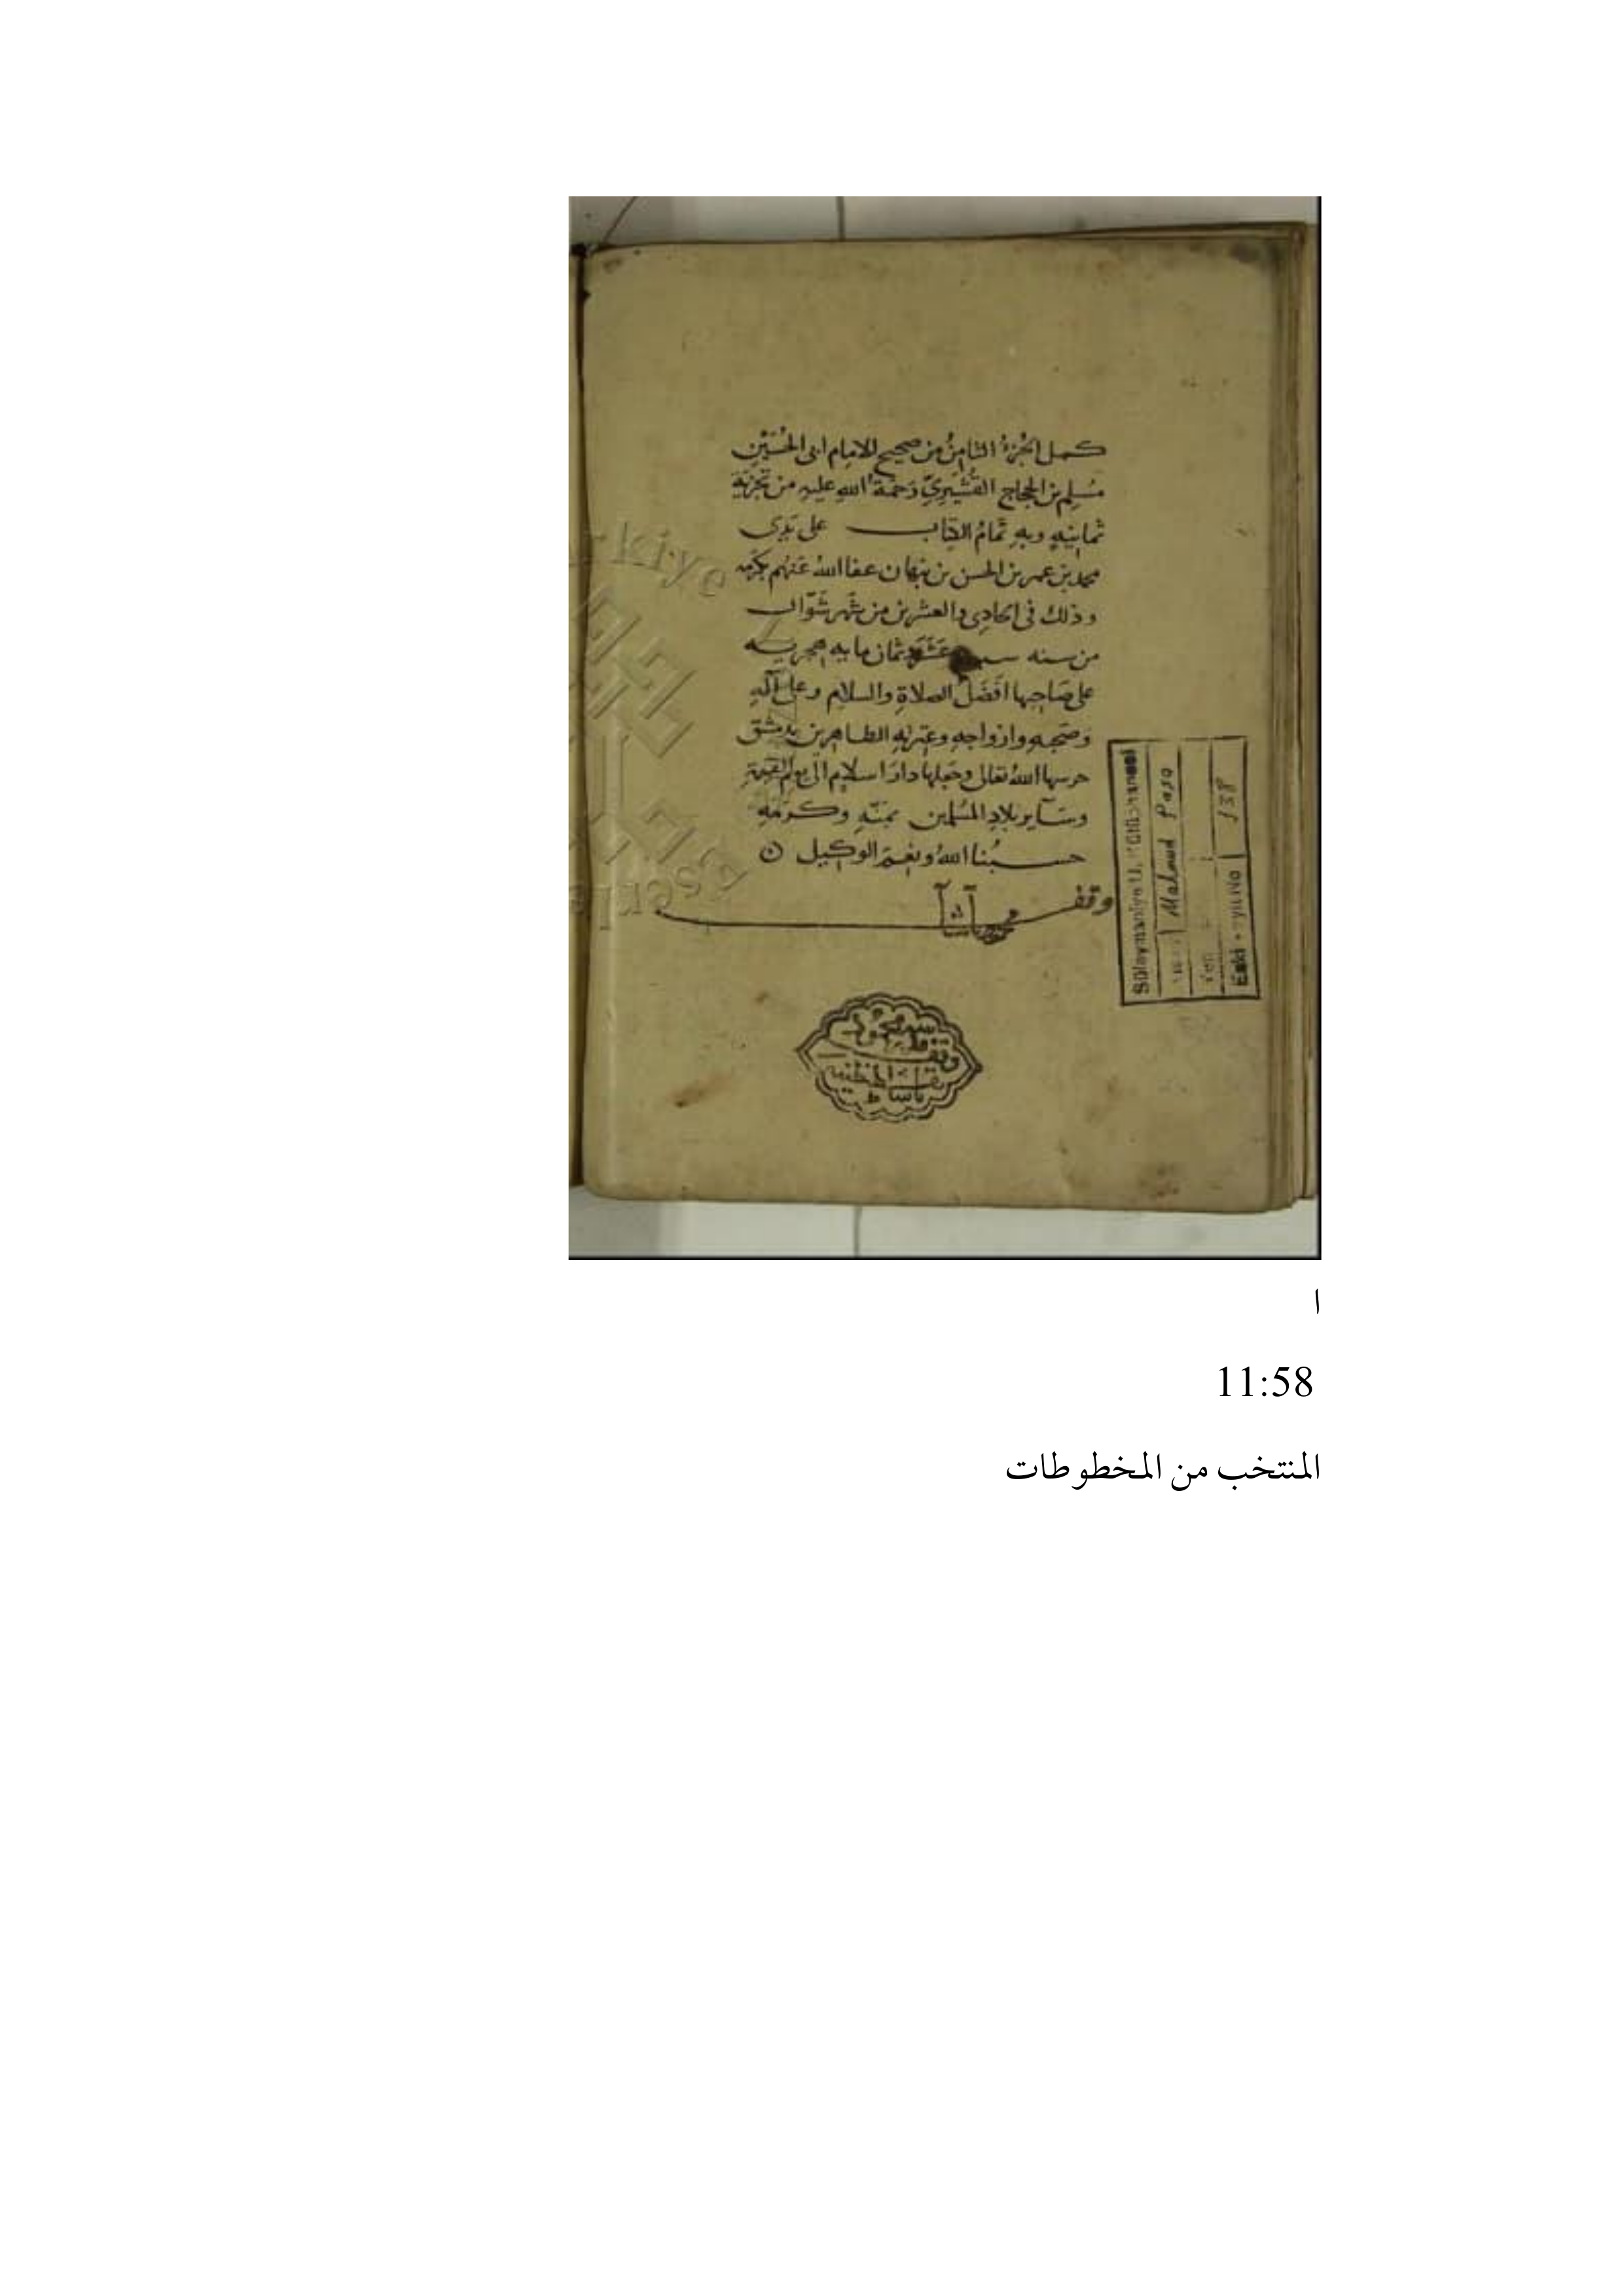 كمل الجُزءُ الثامِنُ من صحيح للامام ابى الحُسَيْنِ
مُسْلِم بن الحجاج القُشَيرِيّ رَحمَةُ الله عليه من تجزئة
ثمانيه وبهِ تَمامُ الكِتاب على يَدَى
محمد بن عمر بن الحسن بن نبهان عفا اللهُ عَنهُم بكَرَمه
وذلك فى الحادِى والعشرين من شَهر شَوّال
من سنه عَشَرَ وثمان مايه هجريه
على صَاحِبها افَضَل الصلاةِ والسلام وعلى آلهِ
وصَحبهِ وازواجهِ وعترتهِ الطاهرين بدمشق
حرسها اللهُ تعالى وجَعلها دارَ اسلام الى يوم القيمة
وسَآير بلادِ المُسلمين بمَنّهِ وكرَمهِ
حسبُنا اللهُ ونِعمَ الوكيل
وقف
محمود پاشا
Süleymaniye U. Kütüphanesi
Mahmud Paşa
Eski Kayıt No 138
وقف
ا
11:58
المنتخب من المخطوطات